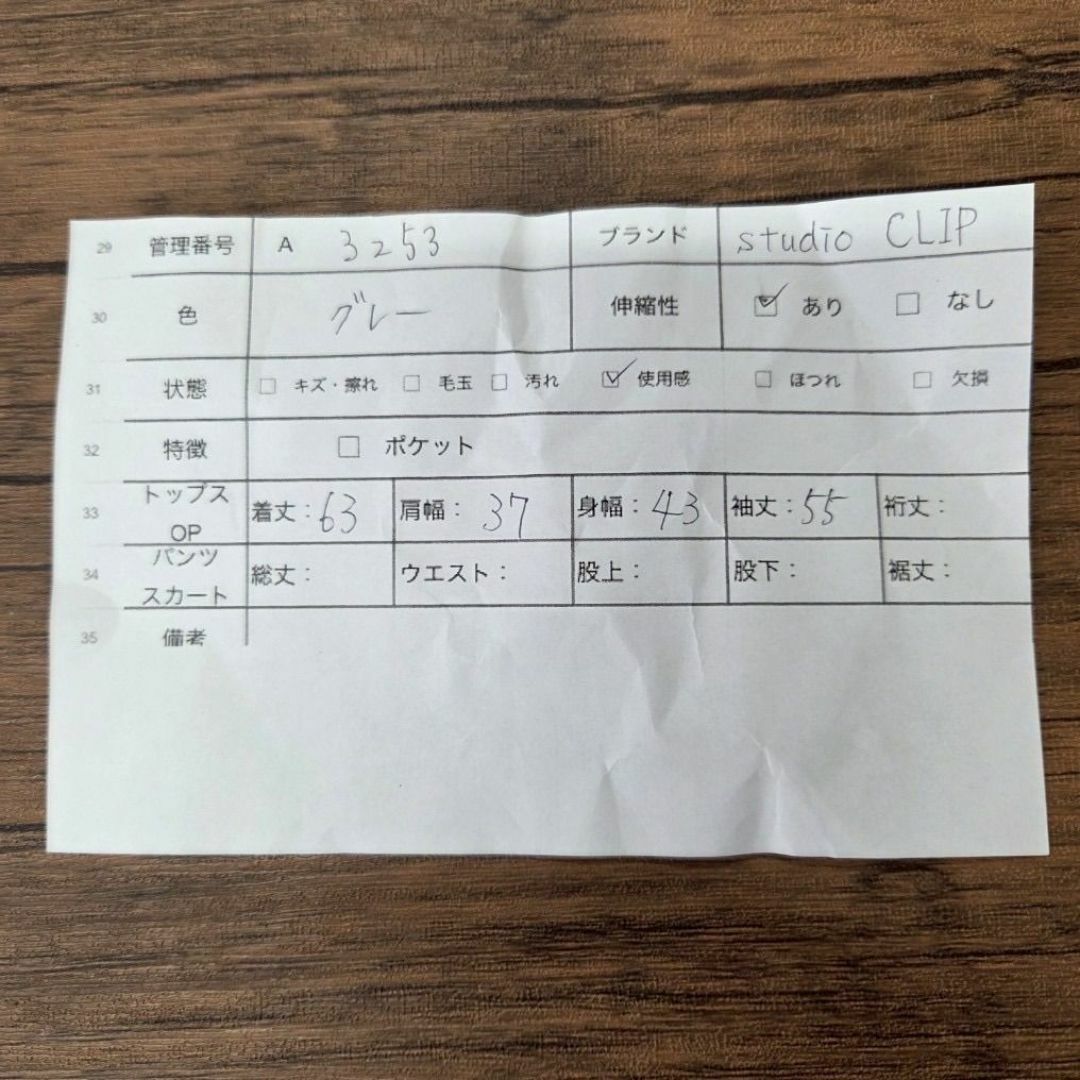 29 管理番号 A 3253 ブランド studio CLIP
30 色 グレー 伸縮性 ☑ あり ☐ なし
31 状態 ☐ キズ・擦れ ☐ 毛玉 ☐ 汚れ ☑ 使用感 ☐ ほつれ ☐ 欠損
32 特徴 ☐ ポケット
33 トップス OP 着丈：63 肩幅：37 身幅：43 袖丈：55 裄丈：
34 パンツ スカート 総丈： ウエスト： 股上： 股下： 裾丈：
35 備考